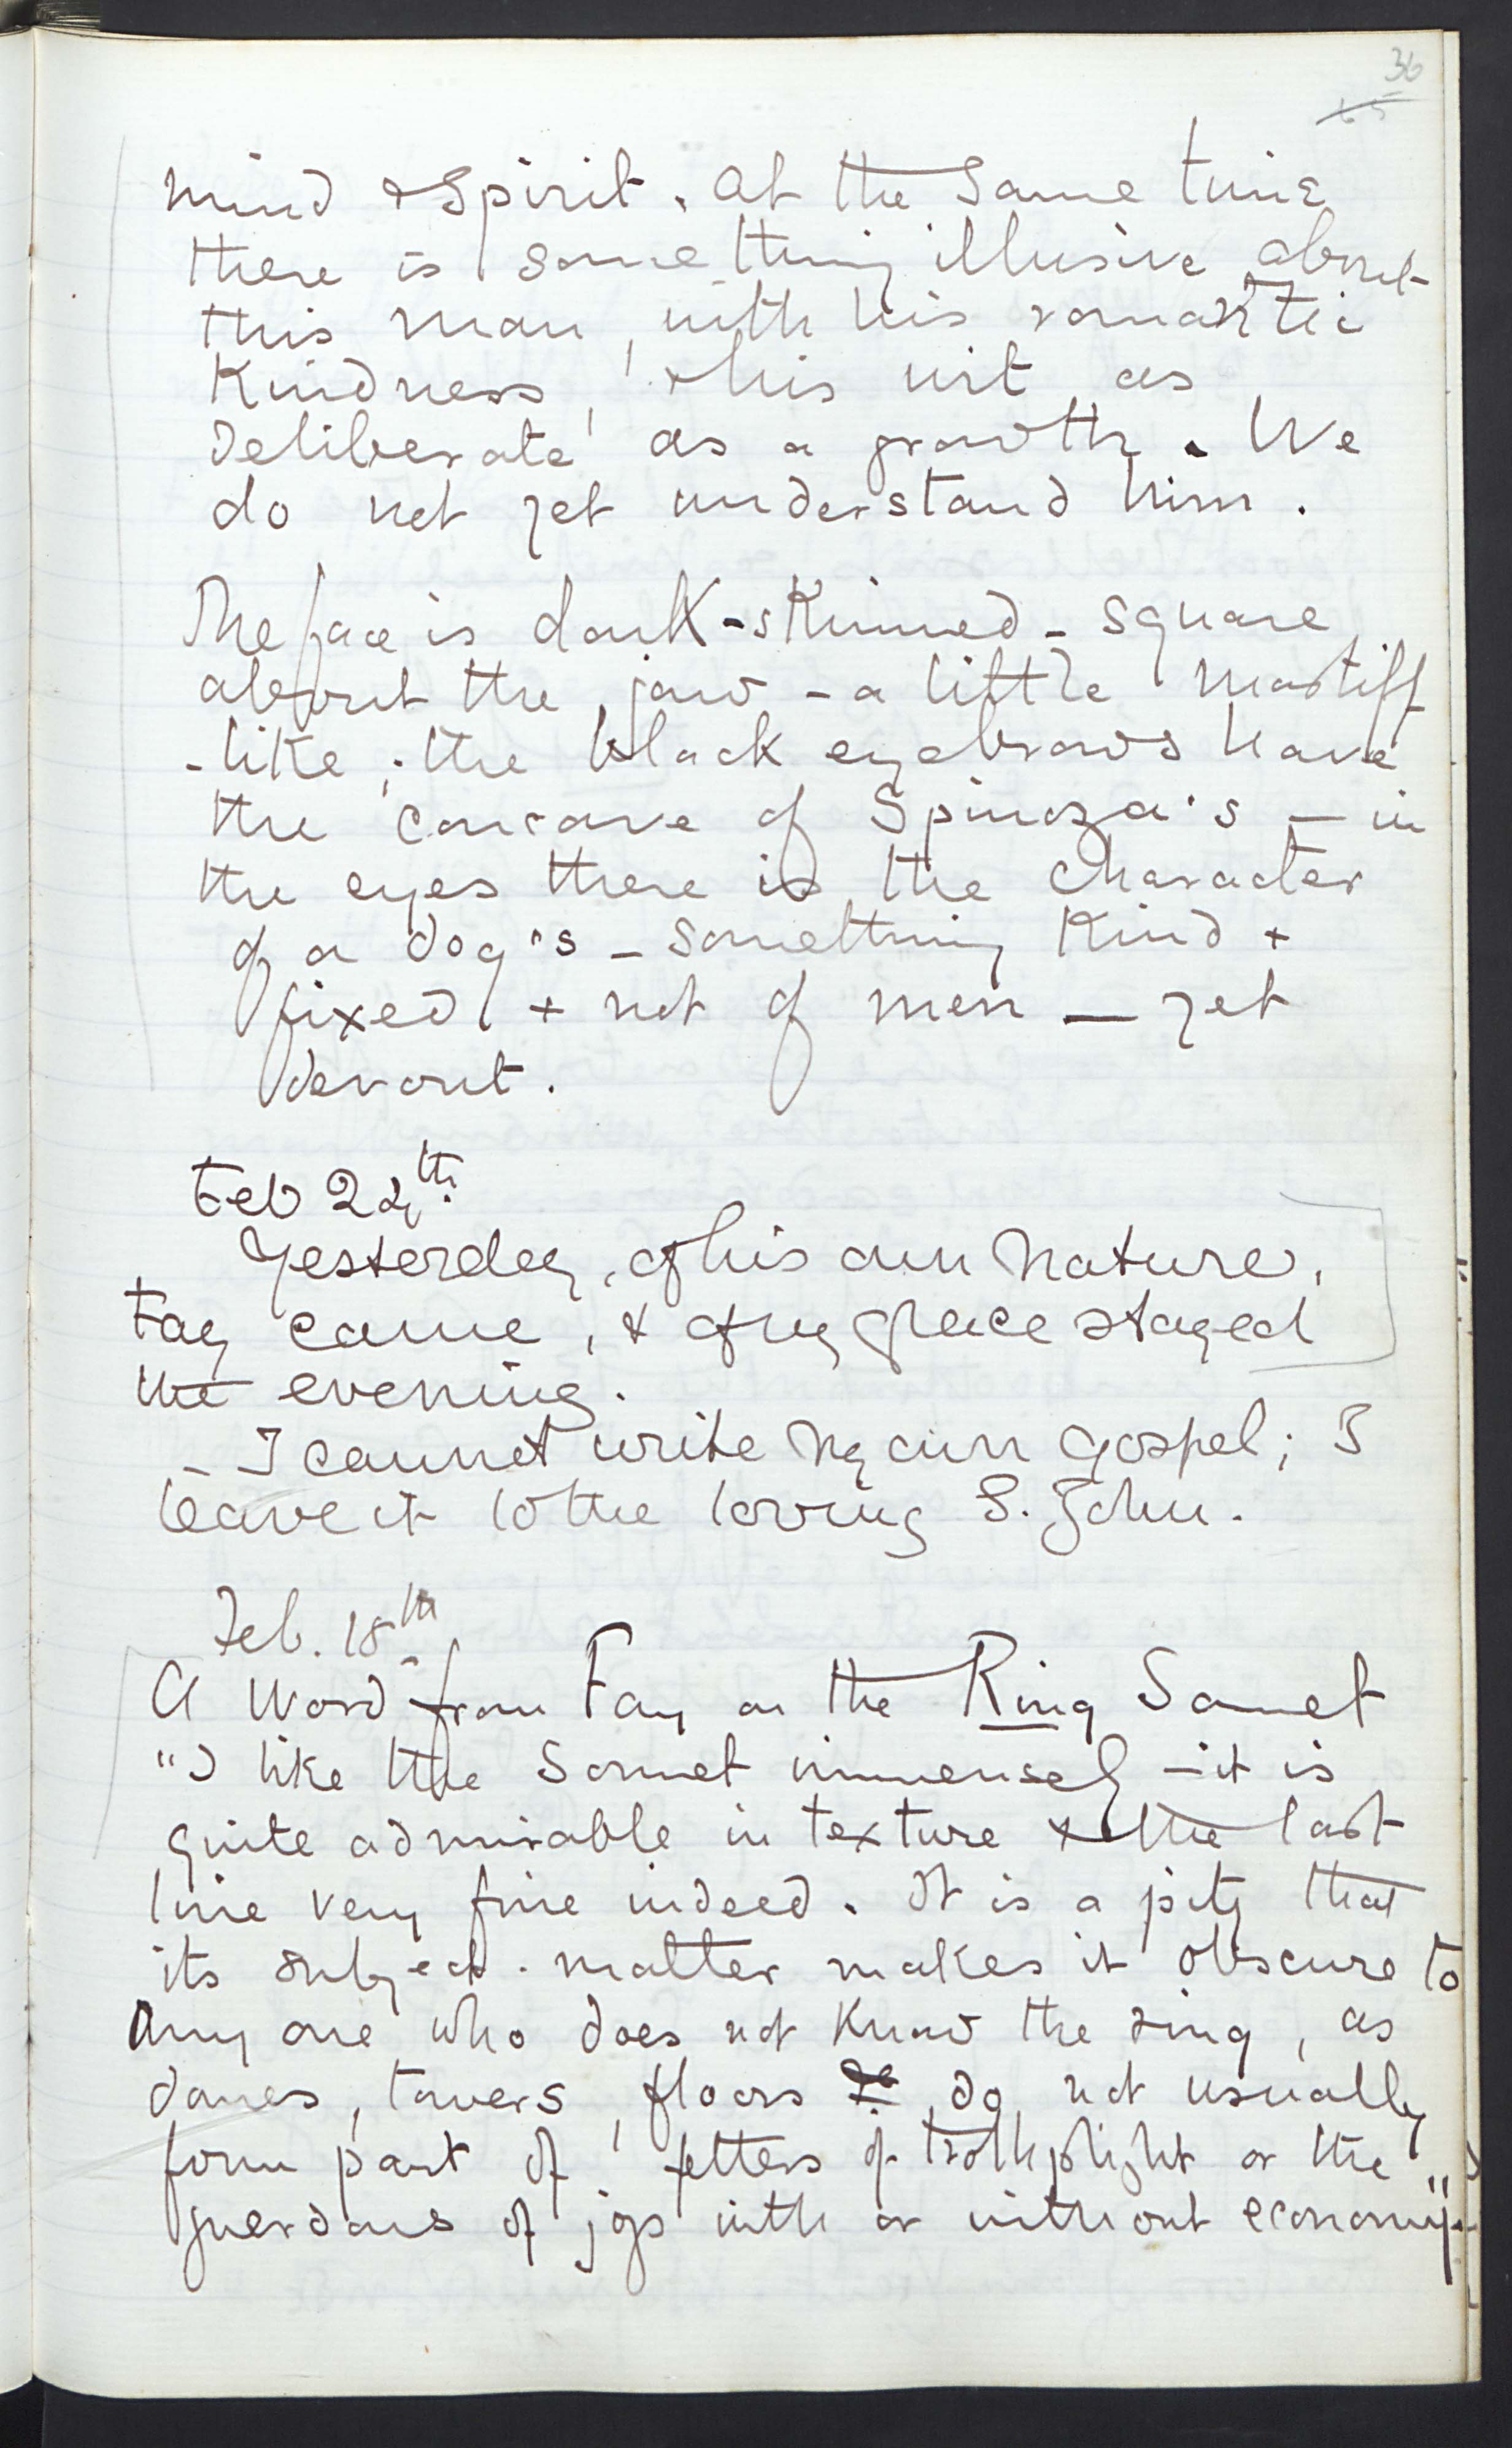 36
mind & Spirit. At the Same time
there is something illusive about
this man, with his romantic
Kindness, & his wit as
deliberate as a growth. We
do not yet understand him.
The face is dark-skinned - square
about the jaw - a little mastiff
-like; the black eyebrows have
the concave of Spinoza's — in
the eyes there is the character
of a dog's - something kind &
fixed & not of men — yet
devout.
Feb 24th.
Yesterday, of his own nature,
Fay came, & of my grace stayed
the evening.
- I cannot write my own Gospel; I
leave it to the loving S. John.
Feb. 18th
A Word from Fay on the Ring Sonnet
"I like the Sonnet immensely - it is
quite admirable in texture & the last
line very fine indeed. It is a pity that
its subject-matter makes it obscure to
any one who does not know the ring, as
domes, towers, floors do not usually
form part of fetters of trothplight or the
guerdons of joys with or without economy."